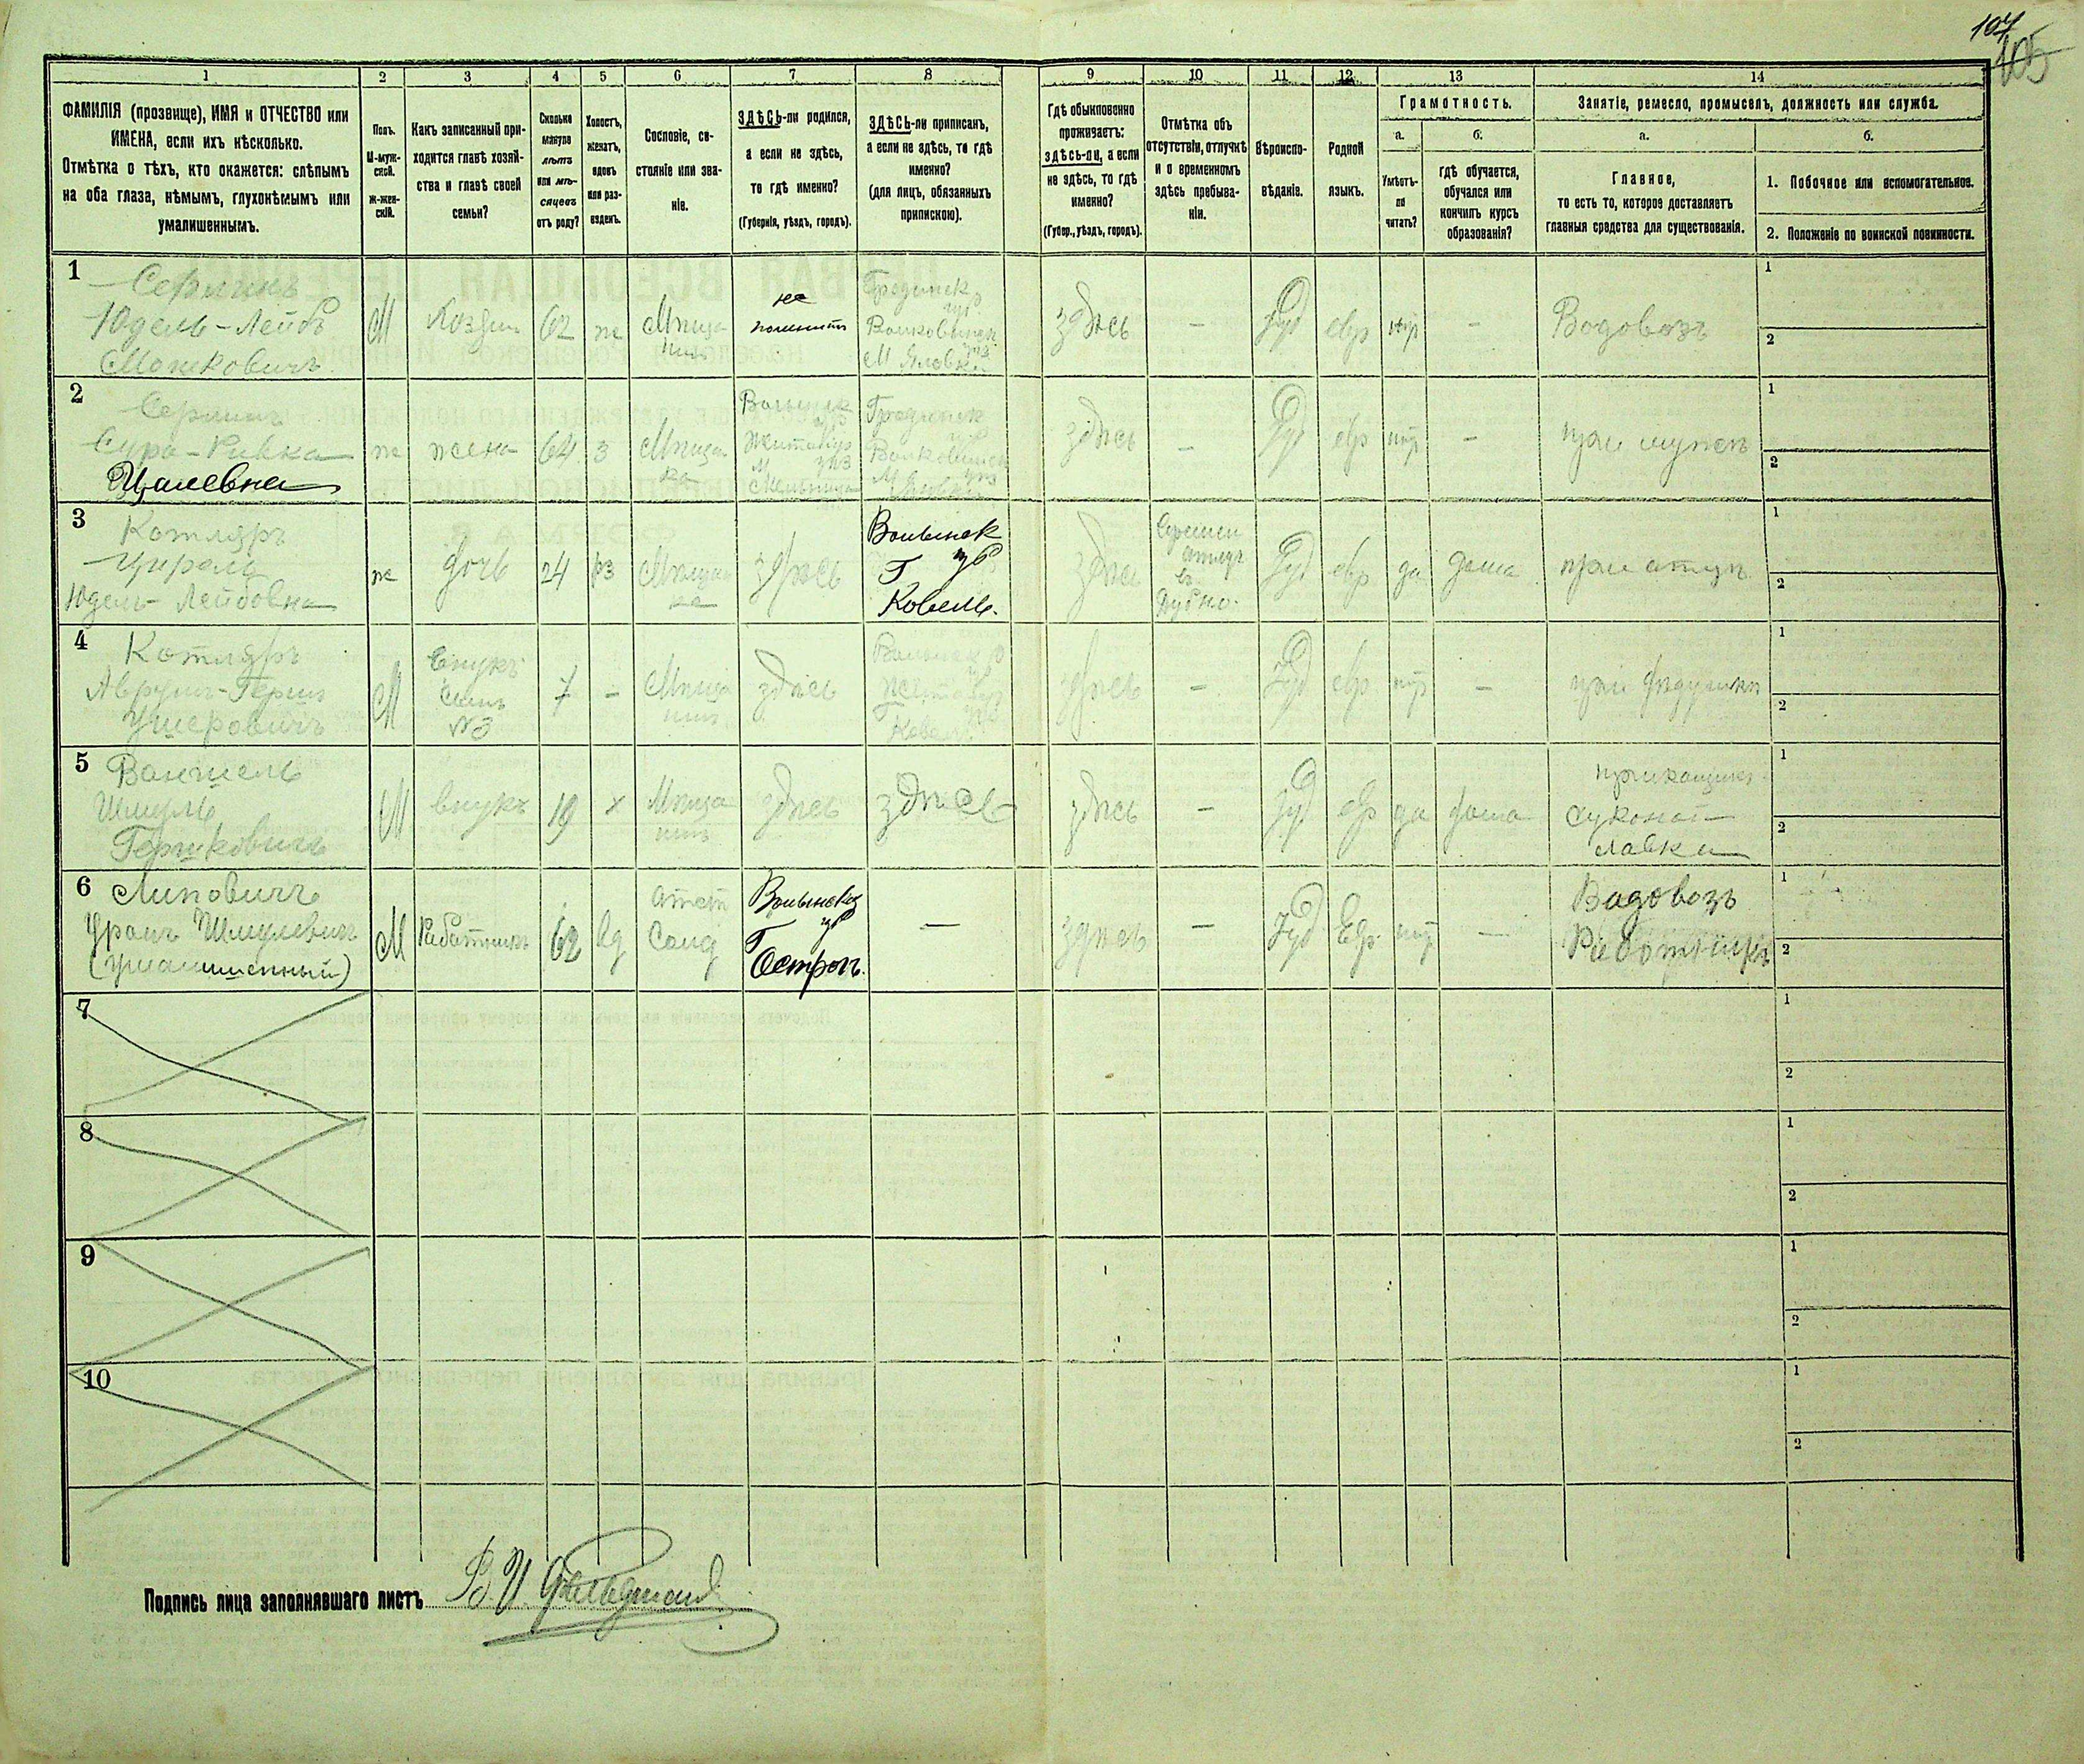 107
105
1
2
3
4
5
6
7
8
9
10
11
12
13
14
ФАМИЛІЯ (прозвище), ИМЯ и ОТЧЕСТВО или
ИМЕНА, если ихъ нѣсколько.
Отмѣтка о тѣхъ, кто окажется: слѣпымъ
на оба глаза, нѣмымъ, глухонѣмымъ или
умалишеннымъ.
Полъ.
М-муж-
ской.
Ж-жен-
скій.
Какъ записанный при-
ходится главѣ хозяй-
ства и главѣ своей
семьи?
Сколько
минуло
лѣтъ
или мѣ-
сяцевъ
отъ роду?
Холостъ,
женатъ,
вдовъ
или раз-
веденъ.
Сословіе, со-
стояніе или зва-
ніе.
ЗДѢСЬ-ли родился,
а если не здѣсь,
то гдѣ именно?
(Губернія, уѣздъ, городъ).
ЗДѢСЬ-ли приписанъ,
а если не здѣсь, то гдѣ
именно?
(для лицъ, обязанныхъ
припискою).
Гдѣ обыкновенно
проживаетъ:
здѣсь-ли, а если
не здѣсь, то гдѣ
именно?
(Губер., уѣздъ, городъ).
Отмѣтка объ
отсутствіи, отлучкѣ
и о временномъ
здѣсь пребыва-
ніи.
Вѣроиспо-
вѣданіе.
Родной
языкъ.
Грамотность.
а.
б.
Умѣетъ-
ли
читать?
гдѣ обучается,
обучался или
кончилъ курсъ
образованія?
Занятіе, ремесло, промыселъ, должность или служба.
а.
б.
Главное,
то есть то, которое доставляетъ
главныя средства для существованія.
1. Побочное или вспомогательное.
2. Положеніе по воинской повинности.
1
Серлинъ
Юдель-Лейбъ
Мошковичъ
М
Хозяин
62
ж
Мѣща
нинъ
не
помнитъ
Гродненск
губ
Волковышск
уѣз
М Яловка
здѣсь
-
Іуд
евр
нѣт
-
Водовозъ
1
2
2
Серлинъ
Сура-Ривка
ж
жена
64
з
Мѣщан
ка
Волынск
Житомир
уѣз
М
Гродненск
губ
Волковышск
уѣз
М Яловка
здѣсь
-
Іуд
евр
нѣт
-
при мужѣ
1
2
3
Котляръ
Юдель-Лейбовна
ж
дочь
24
рз
Мѣщан
ка
здѣсь
Волынск
губ
Г
Ковель.
здѣсь
Времен
отлуч
въ
Дубно.
Іуд
евр
да
дома
при отцѣ
1
2
4
Котляръ
Аврумъ-Герш
Ушеровичъ
М
Внукъ
сынъ
№3
7
-
Мѣща
нинъ
здѣсь
Волынск
Г
Ковель
здѣсь
-
Іуд
евр
нѣт
-
при дѣдушкѣ
1
2
5
Шмуль
Гершковичъ
М
внукъ
19
х
Мѣща
нинъ
здѣсь
здѣсь
здѣсь
-
Іуд
евр
да
дома
прикащикъ
суконой
лавки
1
2
6
Липовичъ
Шмулевичъ
(умалишенный)
М
Работникъ
62
Вд
Отст
Солд
Волынской
губ
Г
Острогъ.
-
здѣсь
-
Іуд
Евр
нѣт
-
Водовозъ
Работникъ
1
2
7
1
2
8
1
2
9
1
2
10
1
2
Подпись лица заполнявшаго листъ